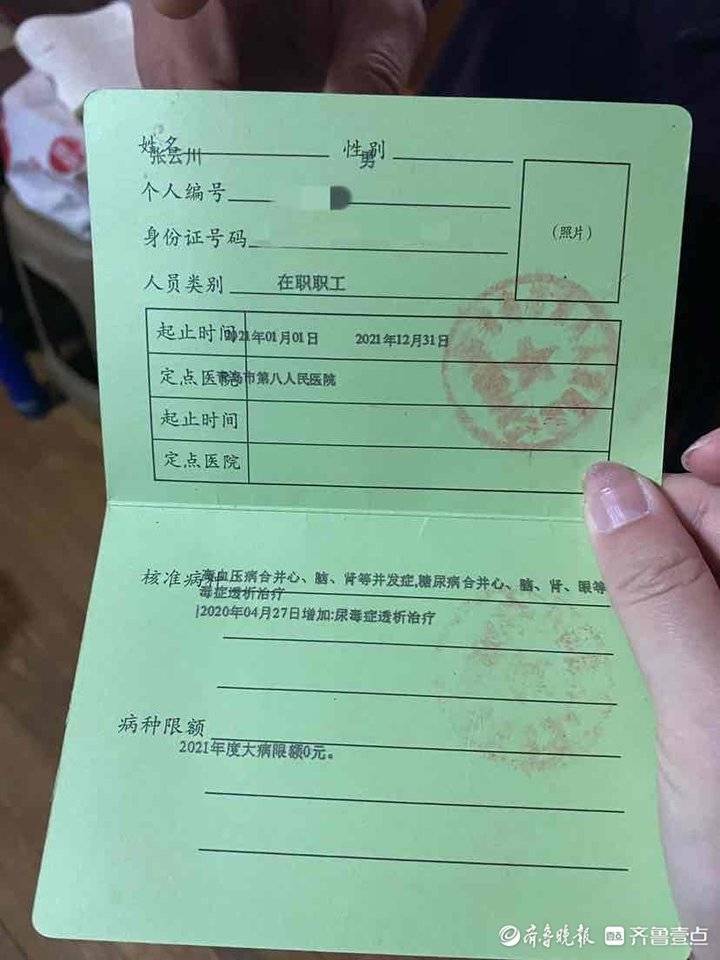 姓名 张云川 性别 男
个人编号
身份证号码
(照片)
人员类别 在职职工
起止时间 2021年01月01日 2021年12月31日
定点医院 青岛市第八人民医院
起止时间
定点医院
核准病种 高血压病合并心、脑、肾等并发症,糖尿病合并心、脑、肾、眼等
毒症透析治疗
|2020年04月27日增加:尿毒症透析治疗
病种限额
2021年度大病限额0元。
齐鲁晚报 齐鲁壹点